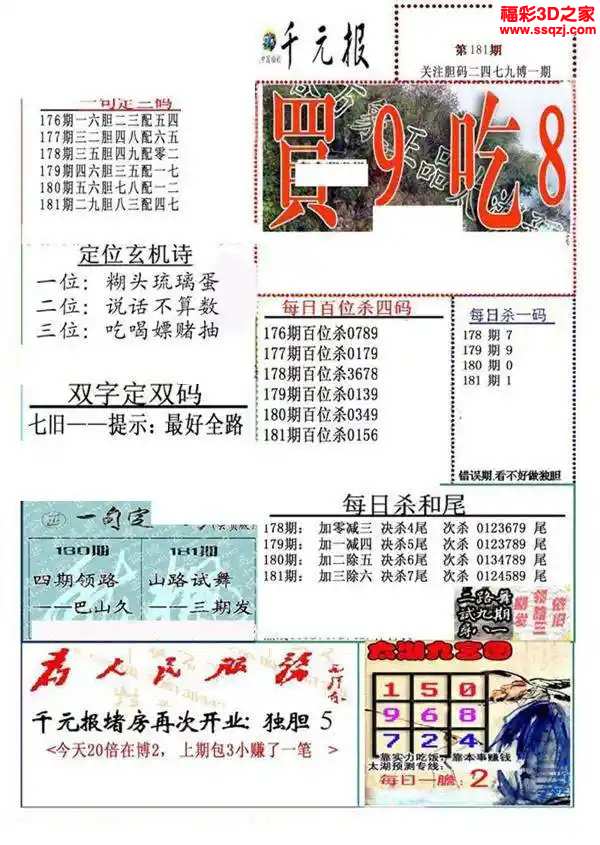 福彩3D之家
www.ssqzj.com
千元报
第181期
关注胆码二四七九博一期
一句定三码
176期一六胆二三配五四
177期三二胆四八配六五
178期三五胆四九配零二
179期四六胆三五配一七
180期五六胆七八配一二
181期二九胆八三配四七
買9吃8
定位玄机诗
一位：糊头琉璃蛋
二位：说话不算数
三位：吃喝嫖赌抽
双字定双码
七旧——提示：最好全路
每日百位杀四码
176期百位杀0789
177期百位杀0179
178期百位杀3678
179期百位杀0139
180期百位杀0349
181期百位杀0156
每日杀一码
178 期 7
179 期 9
180 期 0
181 期 1
错误期,看不好做独胆
一句定
180期
四期领路
——巴山久
181期
山路试舞
——三期发
每日杀和尾
178期： 加零减三 决杀4尾 次杀 0123679 尾
179期： 加一减四 决杀5尾 次杀 0123789 尾
180期： 加二除五 决杀6尾 次杀 0134789 尾
181期： 加三除六 决杀7尾 次杀 0124589 尾
三路舞
试九期
为人民服务
千元报堵房再次开业：独胆 5
<今天20倍在博2，上期包3小赚了一笔 >
太湖九宫图
1 5 0
9 6 8
7 2 4
靠实力吃饭,靠本事赚钱
太湖预测专线:
每日一胆: 2